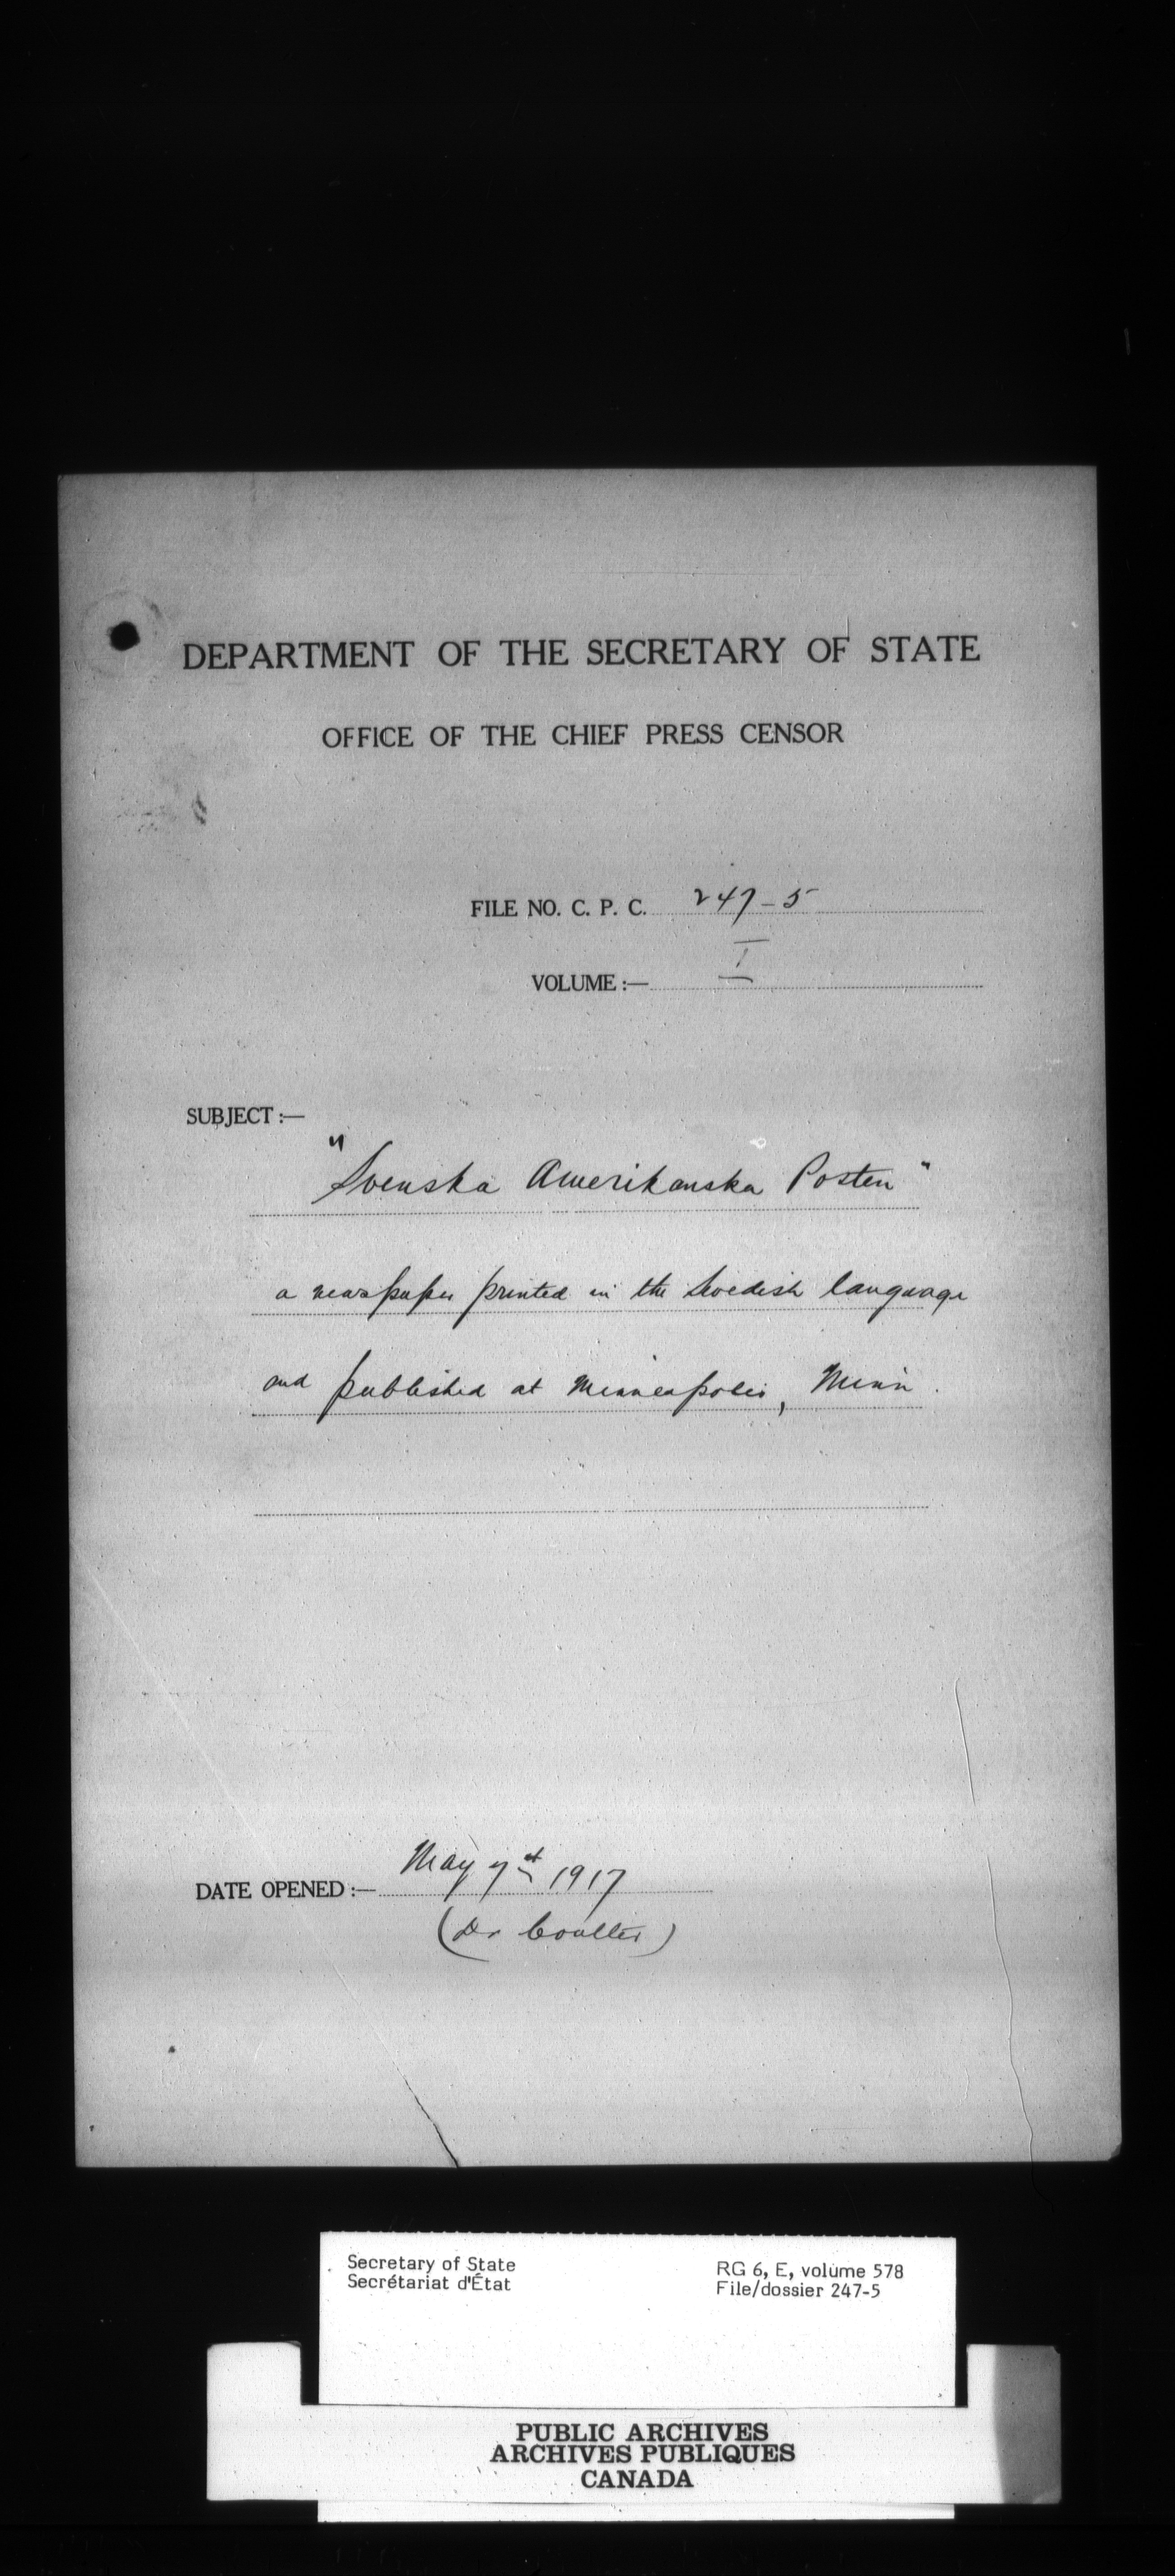 DEPARTMENT OF THE SECRETARY OF STATE
OFFICE OF THE CHIEF PRESS CENSOR
FILE NO. C. P. C. 247-5
VOLUME :— I
SUBJECT :—
"Svenska Amerikanska Posten"
a newspaper printed in the Swedish language
and published at Minneapolis, Minn.
DATE OPENED :— May 7th 1917
(Dr Coulter)
Secretary of State
Secrétariat d'État
RG 6, E, volume 578
File/dossier 247-5
PUBLIC ARCHIVES
ARCHIVES PUBLIQUES
CANADA